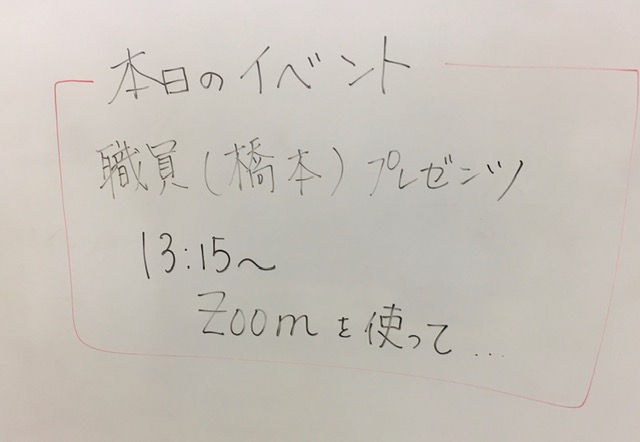 本日のイベント
職員(橋本)プレゼンツ
13:15〜
Zoomを使って...